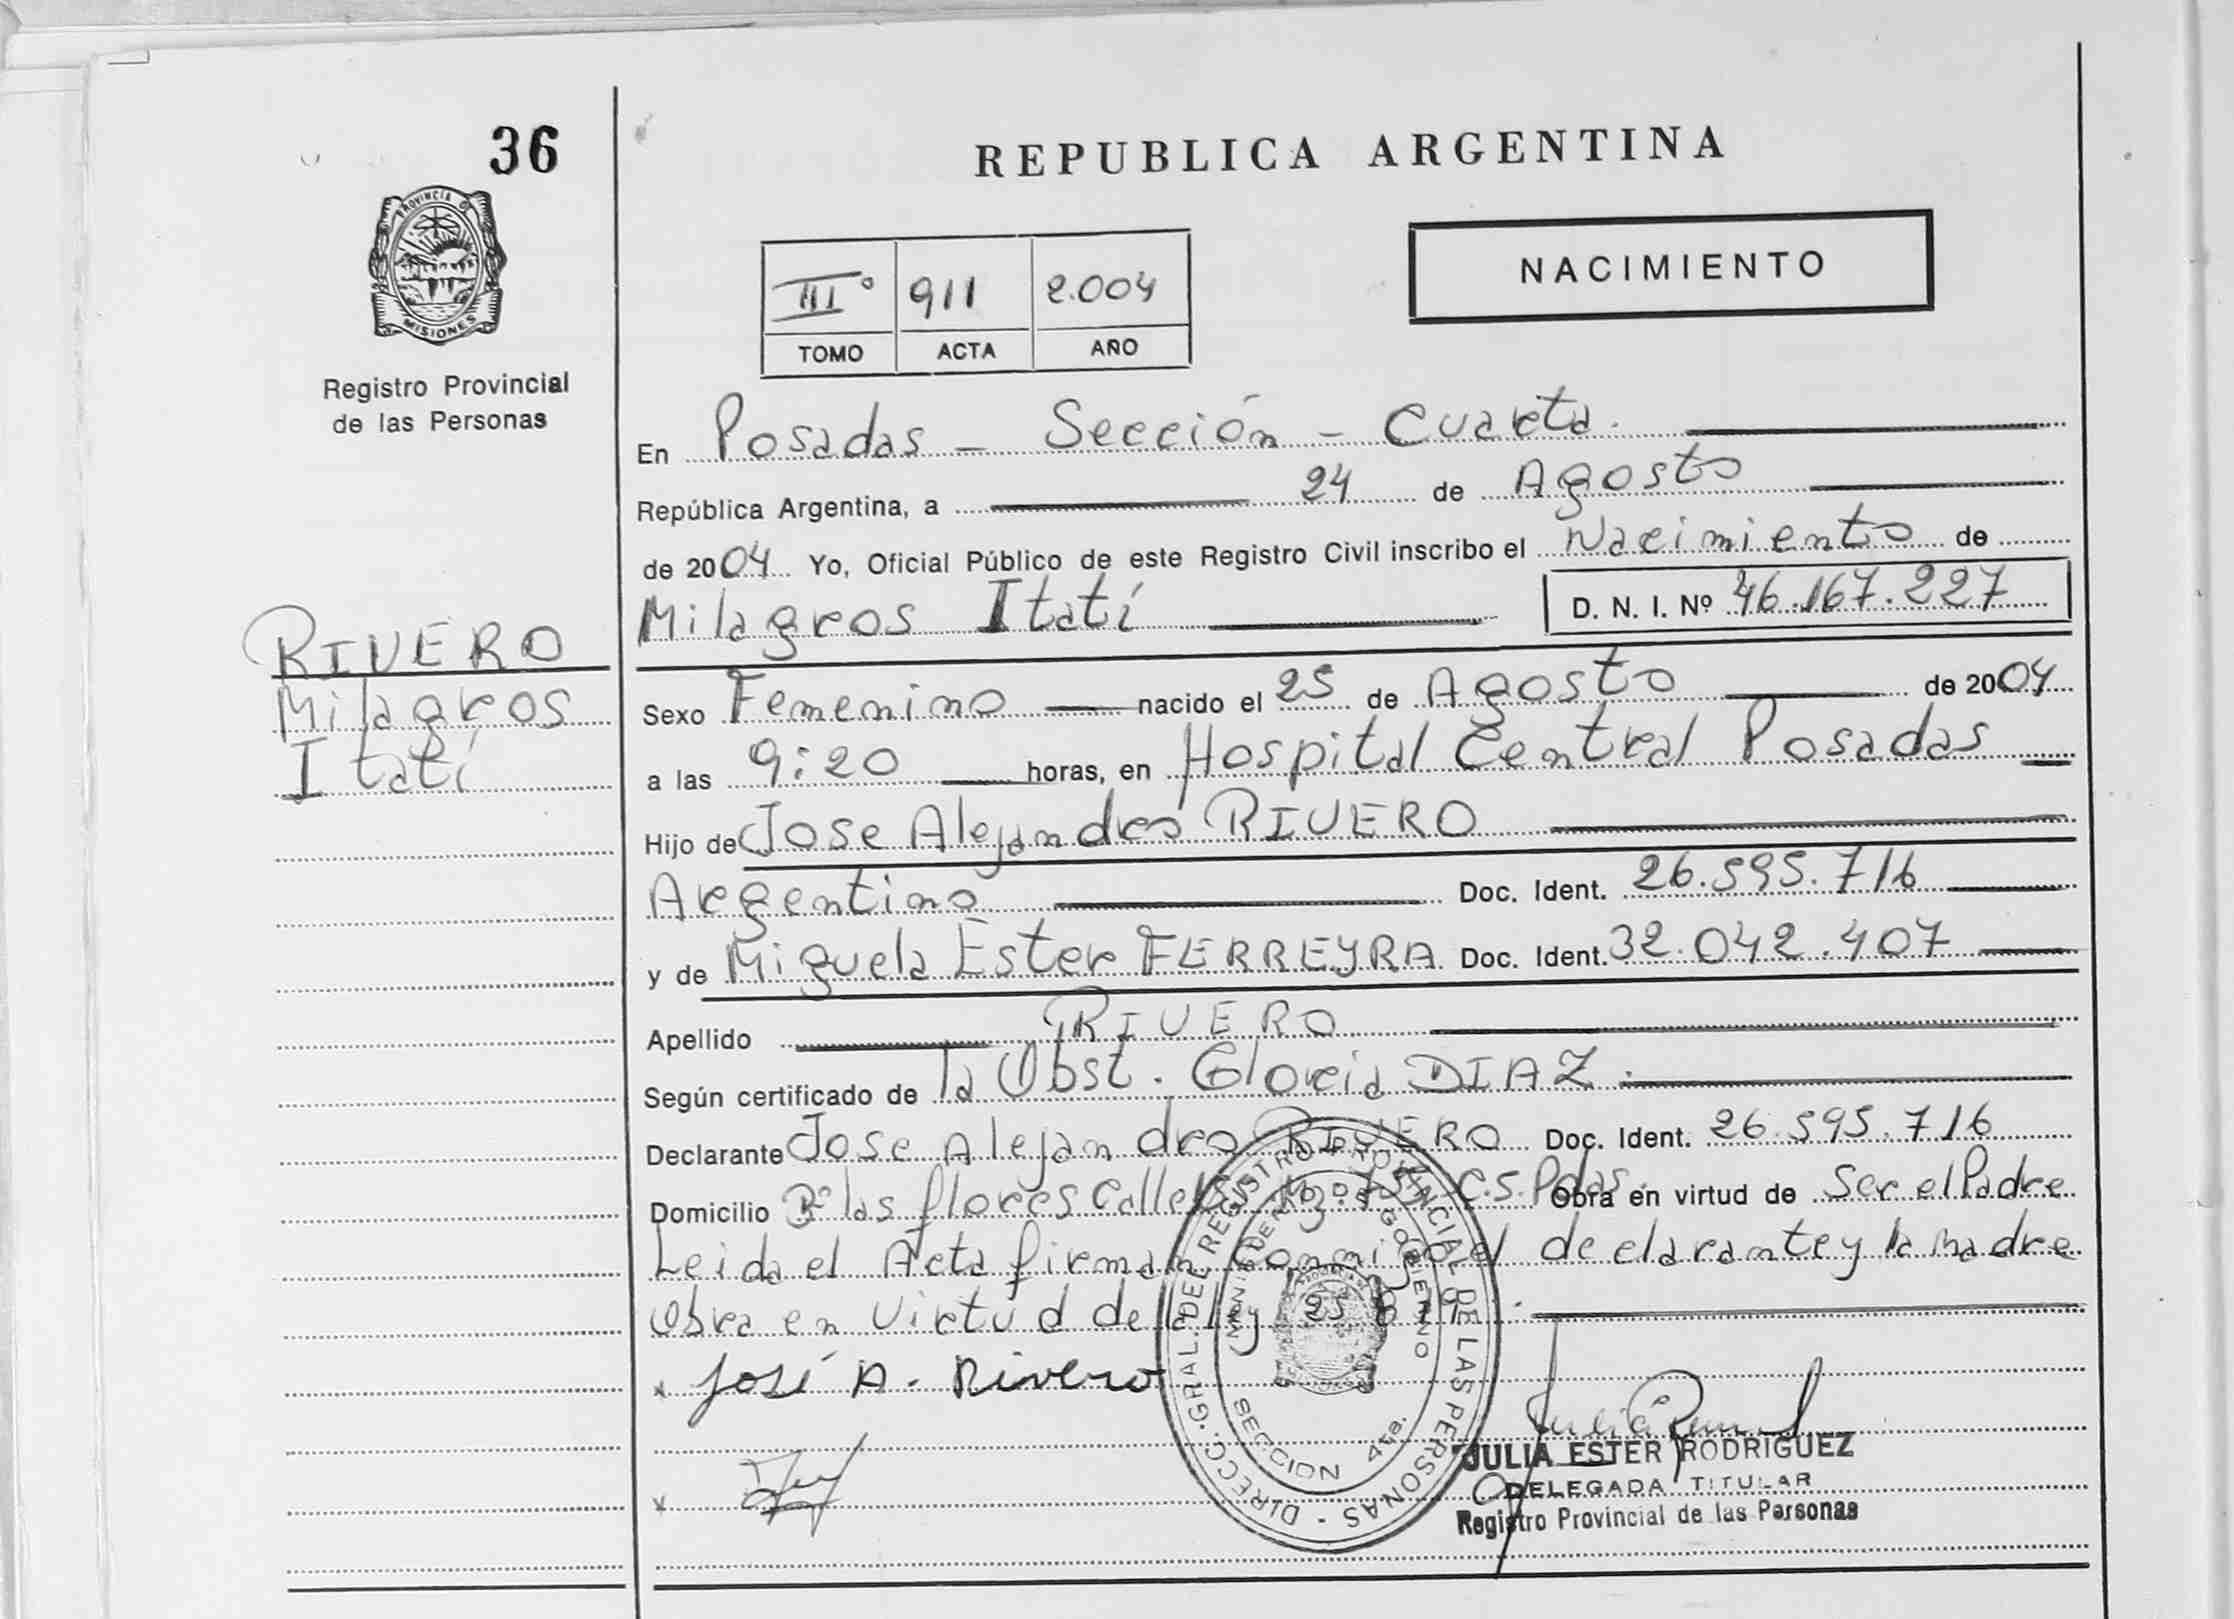 36
REPUBLICA ARGENTINA
PROVINCIA D
MISIONES
Registro Provincial
de las Personas
NACIMIENTO
IIIº 911 2.004
TOMO ACTA AÑO
En Posadas - Sección - Cuarta.
República Argentina, a 24 de Agosto
de 2004 Yo, Oficial Público de este Registro Civil inscribo el Nacimiento de
Milagros Itatí D. N. I. Nº 46.167.227
RIVERO
Milagros
Itatí
Sexo Femenino nacido el 25 de Agosto de 2004
a las 9:20 horas, en Hospital Central Posadas
Hijo de Jose Alejandro RIVERO
Argentino Doc. Ident. 26.595.716
y de Miguela Ester FERREYRA Doc. Ident. 32.042.407
Apellido RIVERO
Según certificado de la Obst. Gloria DIAZ.
Declarante Jose Alejandro RIVERO Doc. Ident. 26.595.716
Domicilio Bº las flores calle C.S. Pdas. Obra en virtud de Ser el Padre
Leida el Acta firman conmigo el declarante y la madre
Obra en Virtud de la ley
José A. Rivero
DIRECC. GRAL. DE REGISTRO PROVINCIAL DE LAS PERSONAS
GOBIERNO
SECCION 4ta.
JULIA ESTER RODRIGUEZ
DELEGADA TITULAR
Registro Provincial de las Personas